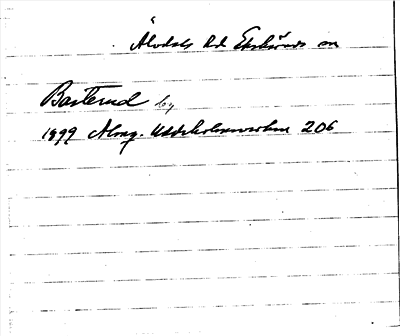 Älvdals hd Ekshärads sn
Basterud by
1899 Almq. Uddeholmsverken 206